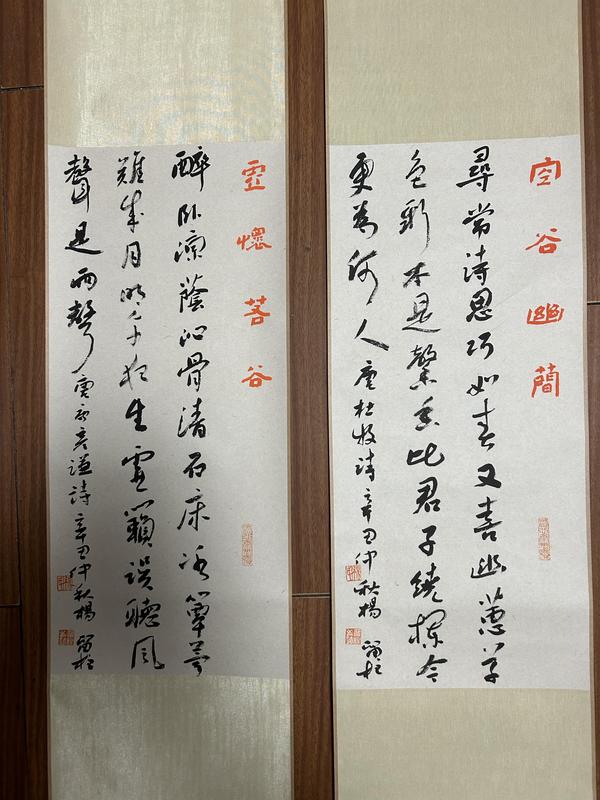 空谷幽蘭
尋常詩思巧如春又喜幽蕙草
色新本是馨香比君子繞欄今
更為何人 唐杜牧詩 辛丑仲秋楊留柱
虛懷若谷
醉臥涼蔭沁骨清石床冰簟夢
難成月明午夜生虛籟誤聽風
聲是雨聲 唐唐彥謙詩 辛丑仲秋楊留柱